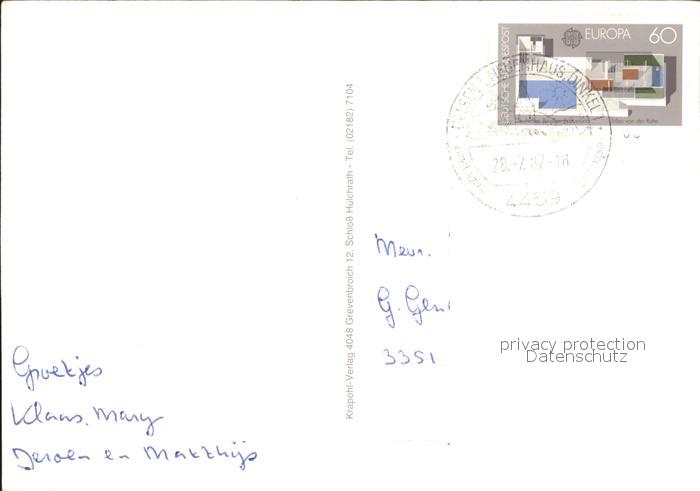 DEUTSCHE BUNDESPOST
EUROPA 60
NEUENHAUS, DINKEL 1
28.-7.87-18
4459
Krapohl-Verlag 4048 Grevenbroich 12, Schloß Hülchrath - Tel. (02182) 7104
Mevr.
G. Gen
3351
privacy protection
Datenschutz
Groetjes
Klaas, Mary
Jeroen en Matthijs